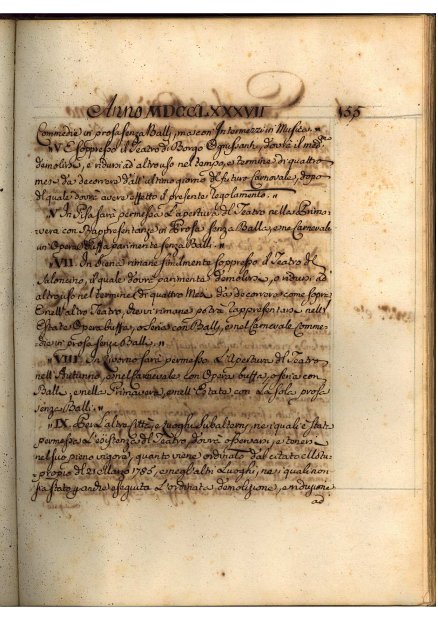 Anno MDCCLXXXVII 135
Commedie in prosa senza Balli, ma con Intermezzi in Musica.
V. È soppresso il Teatro di Borgo Ognissanti, dovrà il med.
demolirsi, e ridursi ad altro uso nel tempo, e termine di quattro
mesi da decorrere dall'ultimo giorno del futuro Carnevale, dopo
il quale dovrà avere effetto il presente regolamento.
In Pisa sarà permessa l'apertura del Teatro nella Prima
vera con Rappresentanze in Prosa senza Balli, e nel Carnevale
un'Opera Buffa parimente senza Balli.
VII. In Siena rimane finalmente soppresso il Teatro del
Saloncino, il quale dovrà parimente demolirsi, o ridursi ad
altro uso nel termine di quattro Mesi da decorrere come sopra
E nell'altro Teatro, che vi rimane potrà rappresentarsi nell'
Estate Opera buffa, o seria con Balli, e nel Carnevale Comme
die in prosa senza Balli.
VIII. In Livorno sarà permessa l'Apertura del Teatro
nell'Autunno, e nel Carnevale con Opera buffa, o seria con
Balli, e nella Primavera, e nell'Estate con la sola prosa
senza Balli.
IX. Per l'altre Città, o Luoghi subalterni, nei quali è stata
permessa l'esistenza del Teatro, dovrà osservarsi, e tenersi
nel suo pieno vigore, quanto viene ordinato dal citato Motu
proprio del 21. Marzo 1785, e negli altri Luoghi, nei quali non
sia stata per anche eseguita l'ordinata demolizione, e riduzione
ad